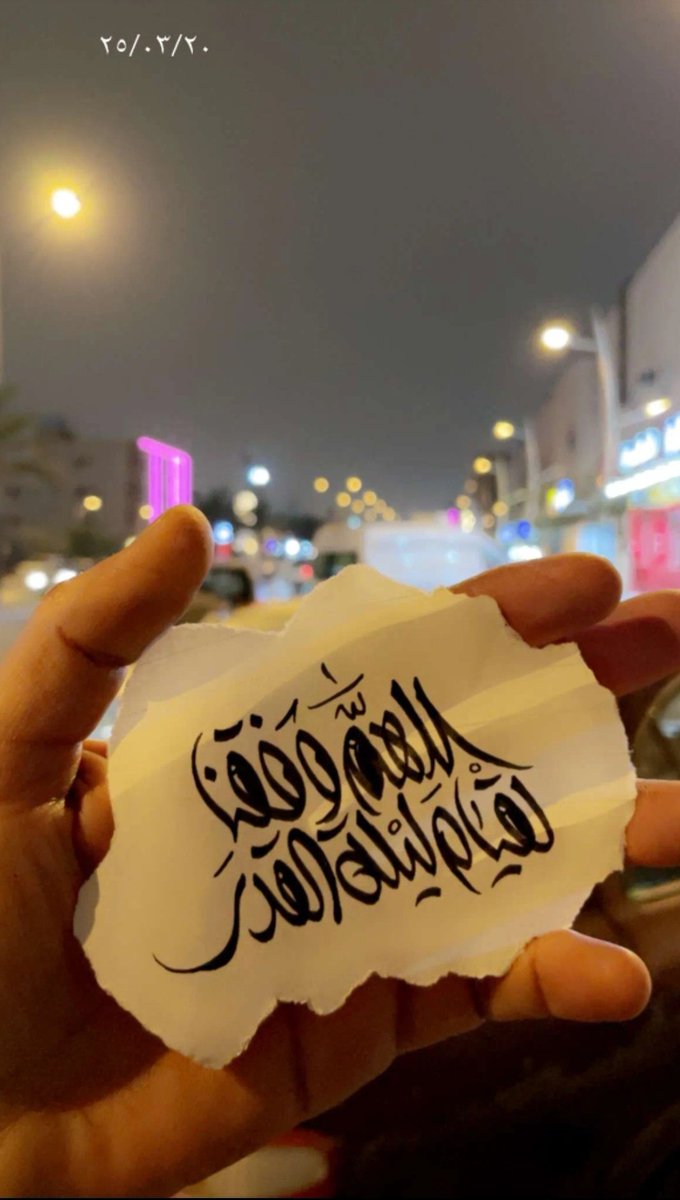 ٢٥/٠٣/٢٠
اللهم وفقنا
لقيام ليلة القدر